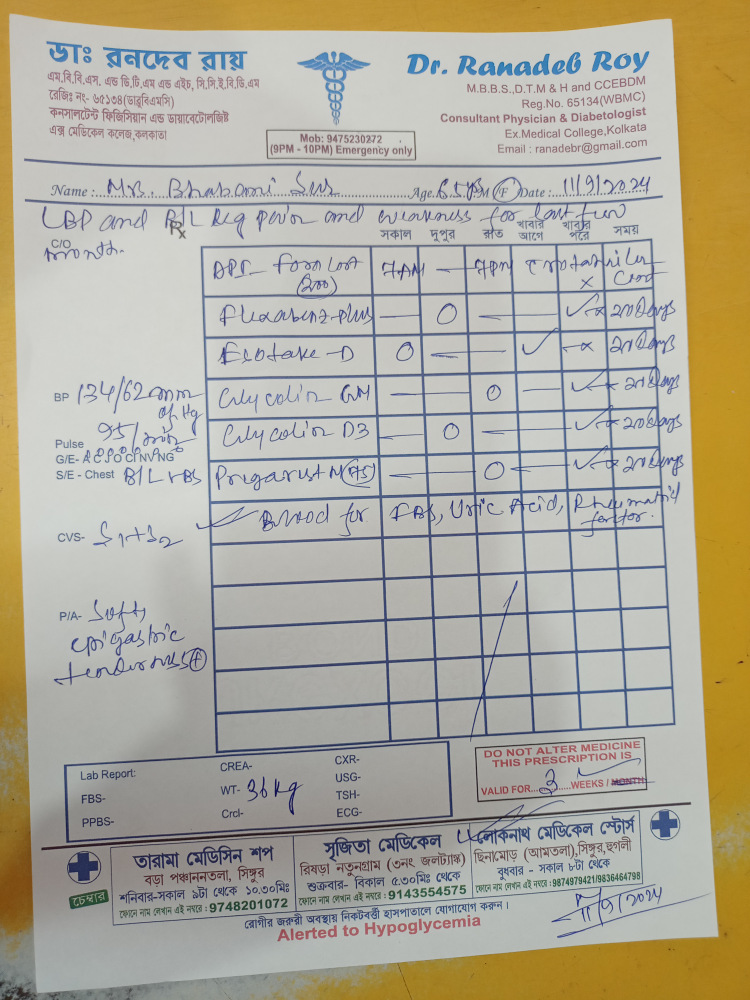 ডাঃ রনদেব রায়
এম.বি.বি.এস. এন্ড ডি.টি.এম এন্ড এইচ, সি.সি.ই.বি.ডি.এম
রেজিঃ নং- ৬৫১৩৪(ডাব্লুবিএমসি)
কনসালটেন্ট ফিজিসিয়ান এন্ড ডায়াবেটোলজিষ্ট
এক্স মেডিকেল কলেজ,কলকাতা
Mob: 9475230272
(9PM - 10PM) Emergency only
Dr. Ranadeb Roy
M.B.B.S.,D.T.M & H and CCEBDM
Reg.No. 65134(WBMC)
Consultant Physician & Diabetologist
Ex.Medical College,Kolkata
Email : ranadebr@gmail.com
Name : Mrs. Bhabani Sur Age. 65 M F Date : 11/9/2024
LBP and B/L leg pain and weakness for last few
Rx
C/O
month.
সকাল দুপুর রাত খাবার আগে খাবার পরে সময়
(200) 7AM — 7PM
Flexabenz-plus — O — 20 days
— D O — 20 days
Glycolin GM — O — 20 days
Glycolin D3 — O — 20 days
M (75) — O — 20 days
Blood for FBS, Uric Acid, Rheumatoid factor.
BP 134/62 mm of Hg
Pulse 95/min
G/E-
S/E - Chest B/L VBS
CVS- S1+S2
P/A- Soft,
epigastric
tenderness (+)
Lab Report:
FBS-
PPBS-
CREA-
WT- 36 kg
Crcl-
CXR-
USG-
TSH-
ECG-
DO NOT ALTER MEDICINE
THIS PRESCRIPTION IS
VALID FOR...3...WEEKS / MONTH
চেম্বার
তারামা মেডিসিন শপ
বড়া পঞ্চাননতলা, সিঙ্গুর
শনিবার-সকাল ৯টা থেকে ১০.৩০মিঃ
ফোনে নাম লেখান এই নম্বরে : 9748201072
সৃজিতা মেডিকেল
রিষড়া নতুনগ্রাম (৩নং জলট্যাঙ্ক)
শুক্রবার- বিকাল ৫.৩০মিঃ থেকে
ফোনে নাম লেখান এই নম্বরে : 9143554575
লোকনাথ মেডিকেল স্টোর্স
ছিনামোড় (আমতলা),সিঙ্গুর,হুগলী
বুধবার - সকাল ৮টা থেকে
ফোনে নাম লেখান এই নম্বরে :9874979421/9836464798
রোগীর জরুরী অবস্থায় নিকটবর্তী হাসপাতালে যোগাযোগ করুন।
Alerted to Hypoglycemia
11/9/2024